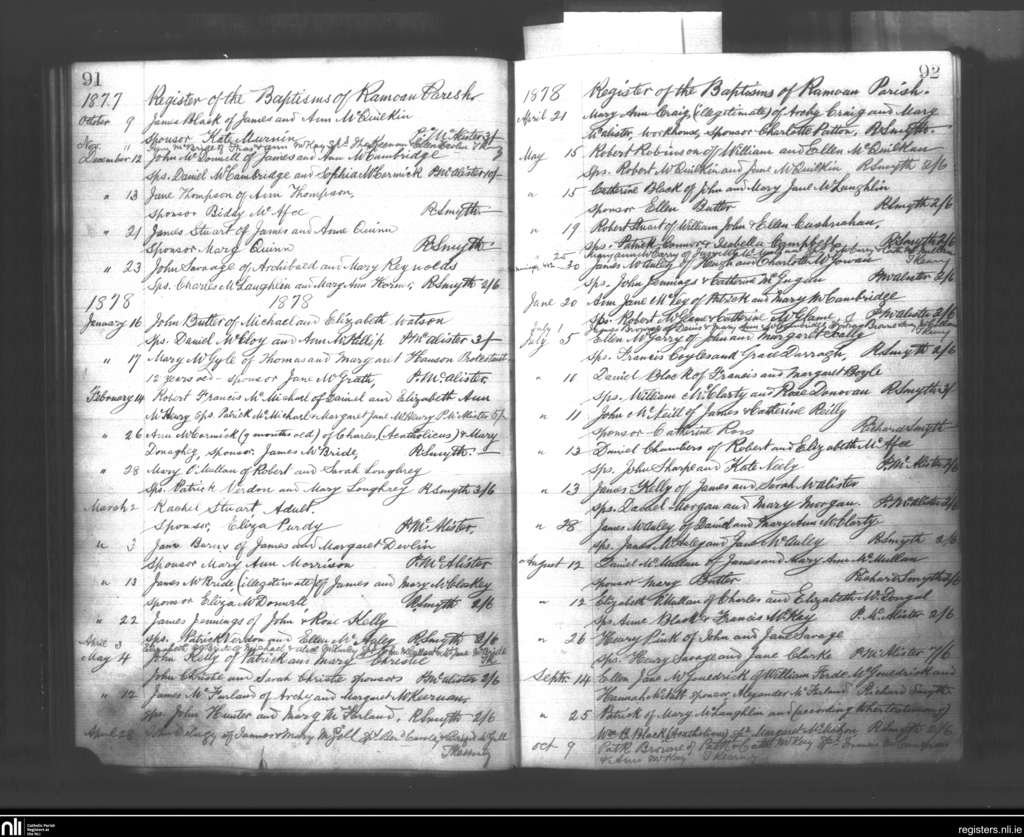 91
1877 Register of the Baptisms of Ramoan Parish
October 9 James Black of James and Ann McQuilkin
Sponsor Kate Murnin P. McAlister 3/-
Nov.
December 12 John McDonnell of James and Ann McCambridge
Sps. Daniel McCambridge and Sophia McCormick P. McAlister
" 13 Jane Thompson of Ann Thompson,
Sponsor Biddy McAfee R Smyth
" 21 James Stuart of James and Anne Quinn
Sponsor Mary Quinn R Smyth
" 23 John Savage of Archibald and Mary Reynolds
Sps. Charles McLaughlin and Mary Ann R. Smyth 2/6
1878 1878
January 16 John Butler of Michael and Elizabeth Watson
Sps. Daniel McCloy and Ann McKillip P McAlister 3/-
" 17 Mary McGyle of Thomas and Margaret Hanson Protestant
12 years old - Sponsor Jane McGrath, P. McAlister
February 14 Robert Francis McMichael of Daniel and Elizabeth Ann
McHenry Sps Patrick McMichael & Margaret Jane McHenry P. McAlister 5/-
" 26 Ann McCormick (9 months old) of Charles (Acatholicus) & Mary
Donaghy, sponsor James McBride, R Smyth
" 28 Mary O'Mullan of Robert and Sarah Loughrey
Sps. Patrick Verdon and Mary Loughrey R Smyth 3/6
March 2 Rachel Stuart, Adult.
Sponsor, Eliza Purdy P McAlister.
" 3 Jane Burns of James and Margaret Devlin
Sponsor Mary Ann Morrison P. McAlister
" 13 James McBride, (illegitimate) of James and Mary McCloskey
Sponsor Eliza McDonnell R Smyth 2/6
" 22 James Jennings of John & Rose Kelly
Sps. Patrick Verdon and Ellen McAuley R Smyth 2/6
April 3
May 4 John Kelly of Patrick and Mary Christie
John Christie and Sarah Christie sponsors P McAlister 2/6
" 12 James McFarland of Archy and Margaret McKiernan,
Sps. John Hunter and Mary McFarland, R Smyth 2/6
April 28 of James & Mary McGill
92
1878 Register of the Baptisms of Ramoan Parish.
April 21 Mary Ann Craig (illegitimate) of Archy Craig and Mary
McAlister, Workhouse, Sponsor Charlotte Patton, R Smyth.
May 15 Robert Robinson of William and Ellen McQuilkan
Sps. Robert McQuilkin and Jane McQuilkin R Smyth 2/6
" 15 Catherine Black of John and Mary Jane McLaughlin
Sponsor Ellen Butter R Smyth 2/6
" 19 Robert Stuart of William John & Ellen Cushnahan,
Sps. Patrick Connor & Isabella Campbell R Smyth 2/6
" 25
" 30 James McAuley of Hugh and Charlotte McGowan
Sps. John Jennings & Catherine McGugan P McAlister 2/6
June 20 Ann Jane McVey of Patrick and Mary McCambridge
Sps. Robert McCann & Catherine McShane P McAlister 2/6
July 1
July 5 Ellen McGarry of John and Margaret Scally
Sps. Francis Coyles and Grace Darragh, R Smyth 2/6
" 10 Daniel Black of Francis and Margaret Boyle
Sps. William McClarty and Rose Donovan R Smyth 3/
" 11 John McNeill of James & Catherine Reilly
Sponsor Catherine Ross Richard Smyth
" 12 Daniel Chambers of Robert and Elizabeth McAfee
Sps. John Sharpe and Kate Neely P. McAlister 2/6
" 13 James Kelly of James and Sarah McAlister
Sps. Daniel Morgan and Mary Morgan. P McAlister 2/6
" 28 James McAuley of David and Mary Ann McClarty
Sps. James McAuley and Jane McAuley R Smyth 2/6
August 12 Daniel McMullan of James and Mary Ann McMullan
Sponsor Mary Butter Richard Smyth 2/6
" 12 Elizabeth McMullan of Charles and Elizabeth McDougal
Sps Anne Black & Francis McKey P. McAlister 2/6
" 26 Henry Pink of John and Jane Savage
Sps. Henry Savage and Jane Clarke P McAlister 7/6
Septr 14 Ellen Jane McGonedrick of William Forde McGonedrick and
Hannah McNeill Sponsor, Alexander McFarland Richard Smyth
" 25 Patrick of Mary McLaughlin and (according to her testimony)
Wm B. Black (Acatholicus) Sp. Margaret McMahon R Smyth 2/6
Oct 9 Patk Browne of Patk & Cath McKay
& Ann McKay
nli
Catholic Parish
Registers at
the NLI
registers.nli.ie